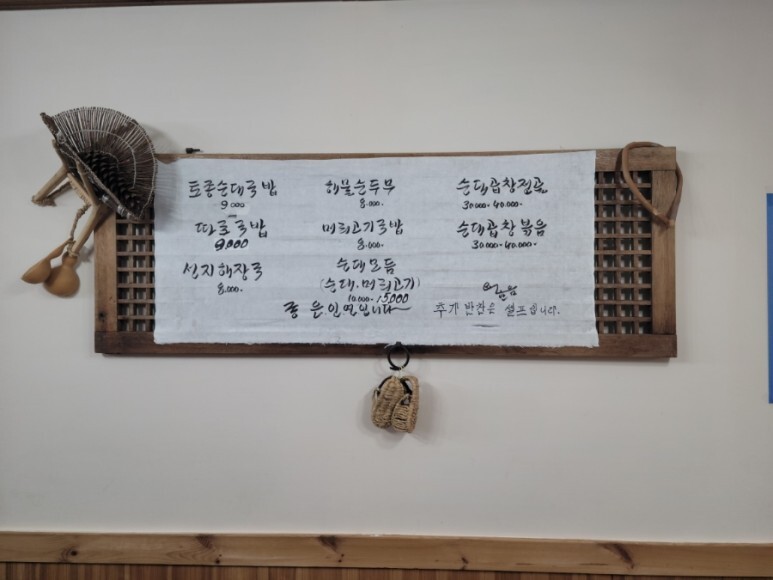 토종순대국밥
9.000
따로국밥
9,000
선지해장국
8.000.
해물순두부
8.000.
머리고기국밥
8.000.
순대모듬
(순대.머리고기)
10.000-15,000
순대곱창전골
30.000-40.000-
순대곱창볶음
30.000-40.000-
좋은.인연입니다
추가반찬은 셀프입니다.